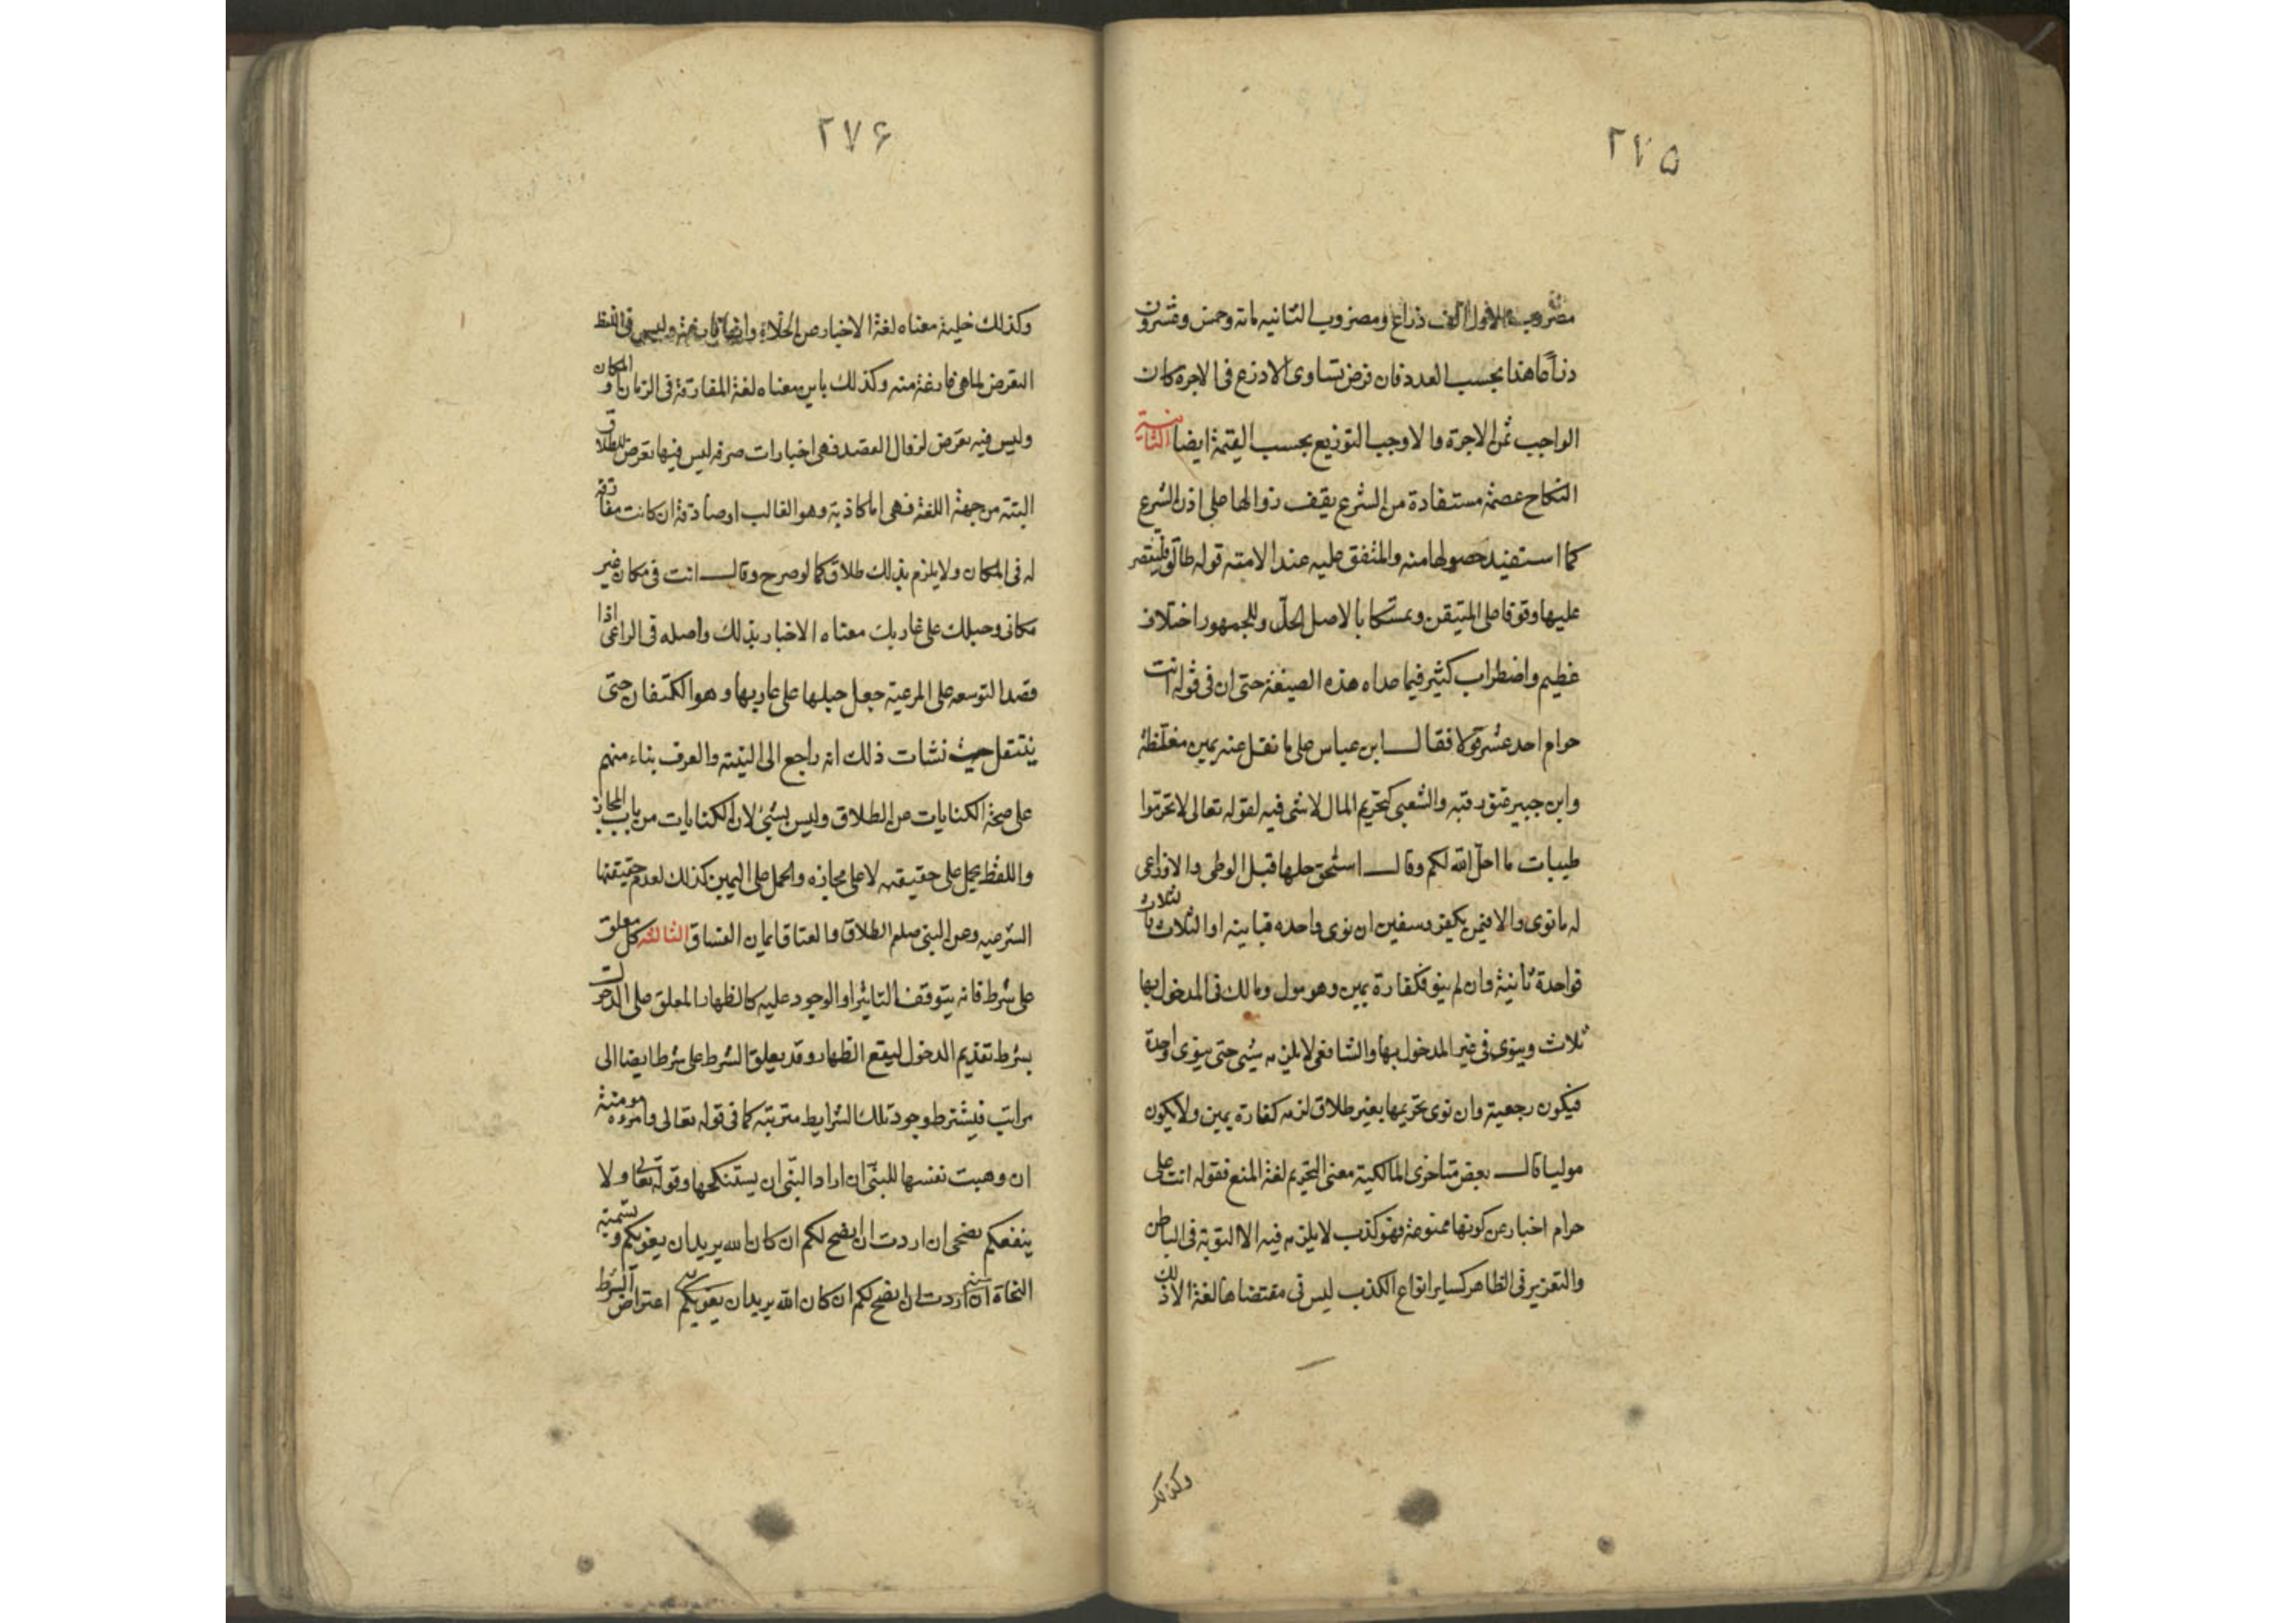 ۲۷۵
مضروب الاول الف ذراع ومضروب الثانيه مائة وخمس وعشرون
ذراعا هذا بحسب العدد فان فرض تساوى الاذرع فى الاجرة كان
الواجب ثمن الاجرة والا وجب التوزيع بحسب القيمة ايضا الثانية
النكاح عصمة مستفادة من الشرع يقف زوالها على اذن الشرع
كما استفيد حصولها منه والمتفق عليه عند الامته قوله طالق فليقتصر
عليها وقوفا على المتيقن وتمسكا بالاصل الحل وللجمهور اختلاف
عظيم واضطراب كثير فيما عداه هذه الصيغة حتى ان فى قوله انت
حرام احد عشر قولا فقال ابن عباس على ما نقل عنه يمين مغلظة
وابن جبير عتق رقبه والشعبى كتحريم المال لا شى فيه لقوله تعالى لا تحرموا
طيبات ما احل الله لكم وقال اسحق حلها قبل الوطى والاوزاعى
له ما نوى والا فيمين يكفر وسفين ان نوى واحده فبا ينه او الثلاث فثلاث
فواحدة بأنية وان لم ينو فكفارة يمين وهو مول ومالك فى المدخول بها
ثلاث وينوى فى غير المدخول بها والشافعى لا يلزمه شيى حتى ينوى واحدة
فيكون رجعية وان نوى تحريمها بغير طلاق لزمه كفارة يمين ولا يكون
موليا قال بعض متاخرى المالكية معنى التحريم لغة المنع فقوله انت على
حرام اخبار عن كونها ممنوعة فهو كذب لا يلزمه فيه الا التوبة فى الباطن
والتعزير فى الظاهر كساير انواع الكذب ليس فى مقتضاها لغة الا ذلك
وكذلك
۲۷۶
وكذلك خلية معناه لغة الاخبار عن الخلاء وانها فارغة وليس فى اللفظ
التعرض لما هى فارغة منه وكذلك باين معناه لغة المفارقة فى الزمان او المكان
وليس فيه تعرض لزوال العصمه فهى اخبارات صرفه ليس فيها تعرض للطلاق
البتة من جهة اللغة فهى اما كاذبة وهو الغالب او صادقة ان كانت مفارقة
له فى المكان ولا يلزم بذلك طلاق كما لو صرح وقال انت فى مكان غير
مكانى وحبلك على غاربك معناه الاخبار بذلك واصله فى الراعى اذا
قصد التوسعه على المرعية جعل حبلها على غاربها وهو الكتفان حتى
ينتقل حيث نشات ذلك انه راجع الى النيته والعرف بناء منهم
على صحة الكنايات عن الطلاق وليس بشئ لان الكنايات من باب المجاز
واللفظ يحمل على حقيقته لا على مجازه والحمل على اليمين كذلك لعدم حقيقتها
الشرعيه وعن النبى صلعم الطلاق والعتاق ايمان الفساق الثالثه كل معلق
على شرط فانه يتوقف التاثير او الوجود عليه كالظهار المعلق على الدخول
بشرط تقديم الدخول ليقع الظهار وقد يعلق الشرط على شرط ايضا الى
مراتب فيشترط وجود تلك الشرايط مترتبة كما فى قوله تعالى وامروه مومنة
ان وهبت نفسها للنبى ان اراد النبى ان يستنكحها وقوله تعالى ولا
ينفعكم نصحى ان اردت ان انصح لكم ان كان الله يريد ان يغويكم وتسمية
النحاة ان اردت ان انصح لكم ان كان الله يريد ان يغويكم اعتراض الشرط